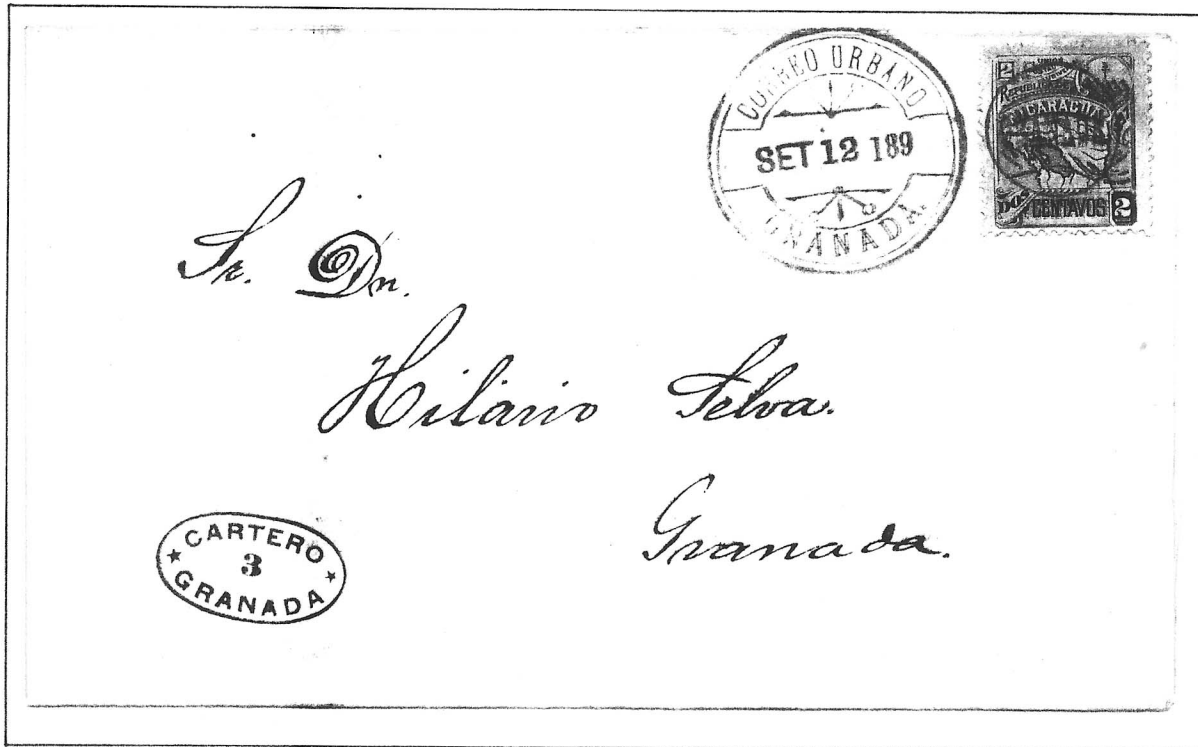 CORREO URBANO
SET 12 189
GRANADA
2
REPUBLICA DE
NICARAGUA
DOS CENTAVOS 2
Sr. Dn.
Hilario Selva.
Granada.
CARTERO
3
GRANADA